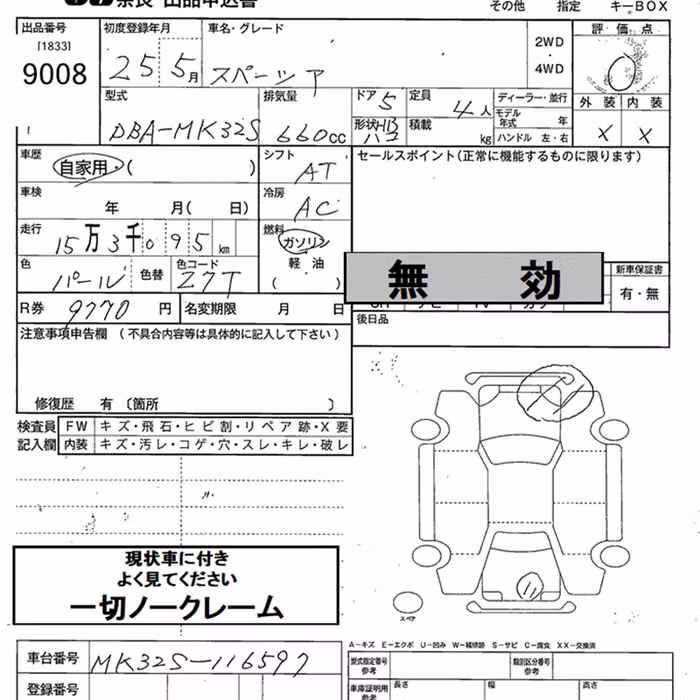 出品申込書
その他 指定 キーBOX
出品番号 初度登録年月 車名・グレード 評価点
[1833]
9008
25 5月 スペーシア
2WD
・
4WD
0
外装 内装
X X
型式 排気量 ドア 定員 ディーラー・並行
DBA-MK32S 660cc 5 4人
モデル年式 年
形状 積載 kg ハンドル 左・右
車歴 自家用・( )
シフト AT
セールスポイント(正常に機能するものに限ります)
車検 年 月( 日)
冷房 AC
走行 15万3千095km
燃料 ガソリン
軽油
( )
色 パール 色替 色コード Z7T
無効
新車保証書
有・無
R券 9770円 名変期限 月 日
後日品
注意事項申告欄 (不具合内容等は具体的に記入して下さい)
修復歴 有 〔箇所 〕
検査員 FW キズ・飛石・ヒビ割・リペア跡・X要
記入欄 内装 キズ・汚レ・コゲ・穴・スレ・キレ・破レ
現状車に付き
よく見てください
一切ノークレーム
スペア
A-キズ E-エクボ U-凹み W-補修跡 S-サビ C-腐食 XX-交換済
車台番号 MK32S-116597
型式指定番号 参考 類別区分番号 参考
登録番号
車庫証明用 参考 長さ 幅 高さ